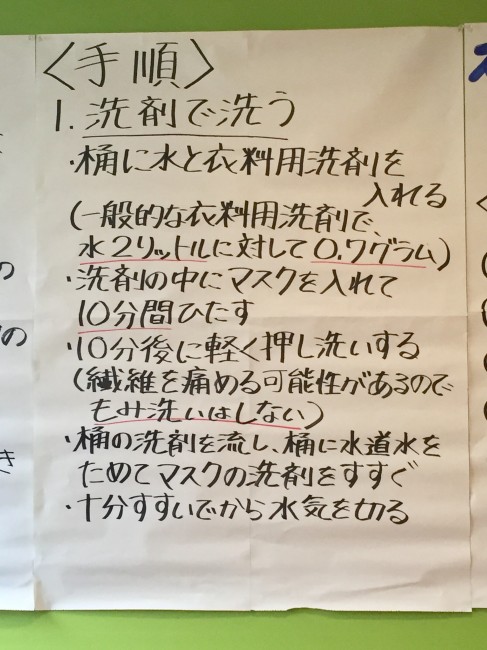 〈手順〉
1. 洗剤で洗う
・桶に水と衣料用洗剤を
入れる
(一般的な衣料用洗剤で、
水2リットルに対して0.7グラム)
・洗剤の中にマスクを入れて
10分間ひたす
・10分後に軽く押し洗いする
(繊維を痛める可能性があるので
もみ洗いはしない)
・桶の洗剤を流し、桶に水道水を
ためてマスクの洗剤をすすぐ
・十分すすいでから水気を切る
の
の
き